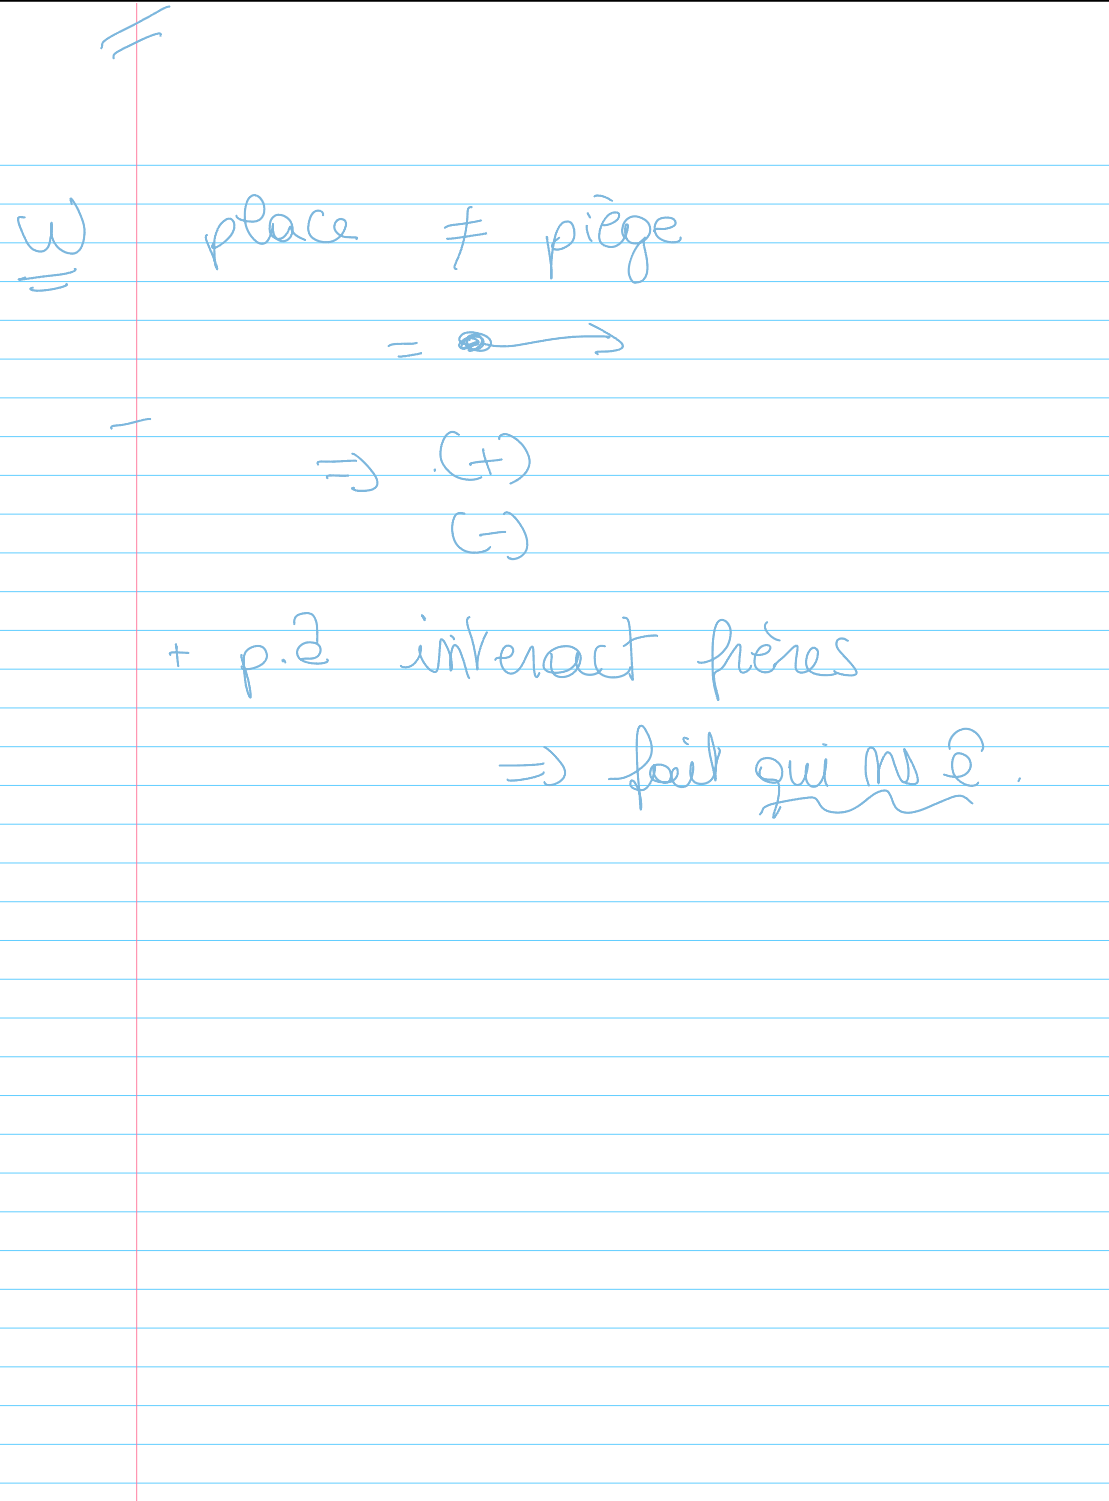 W place ≠ piège
= •→
⇒ (+)
(-)
+ p.ê interact frères
⇒ fait qui ns ê.